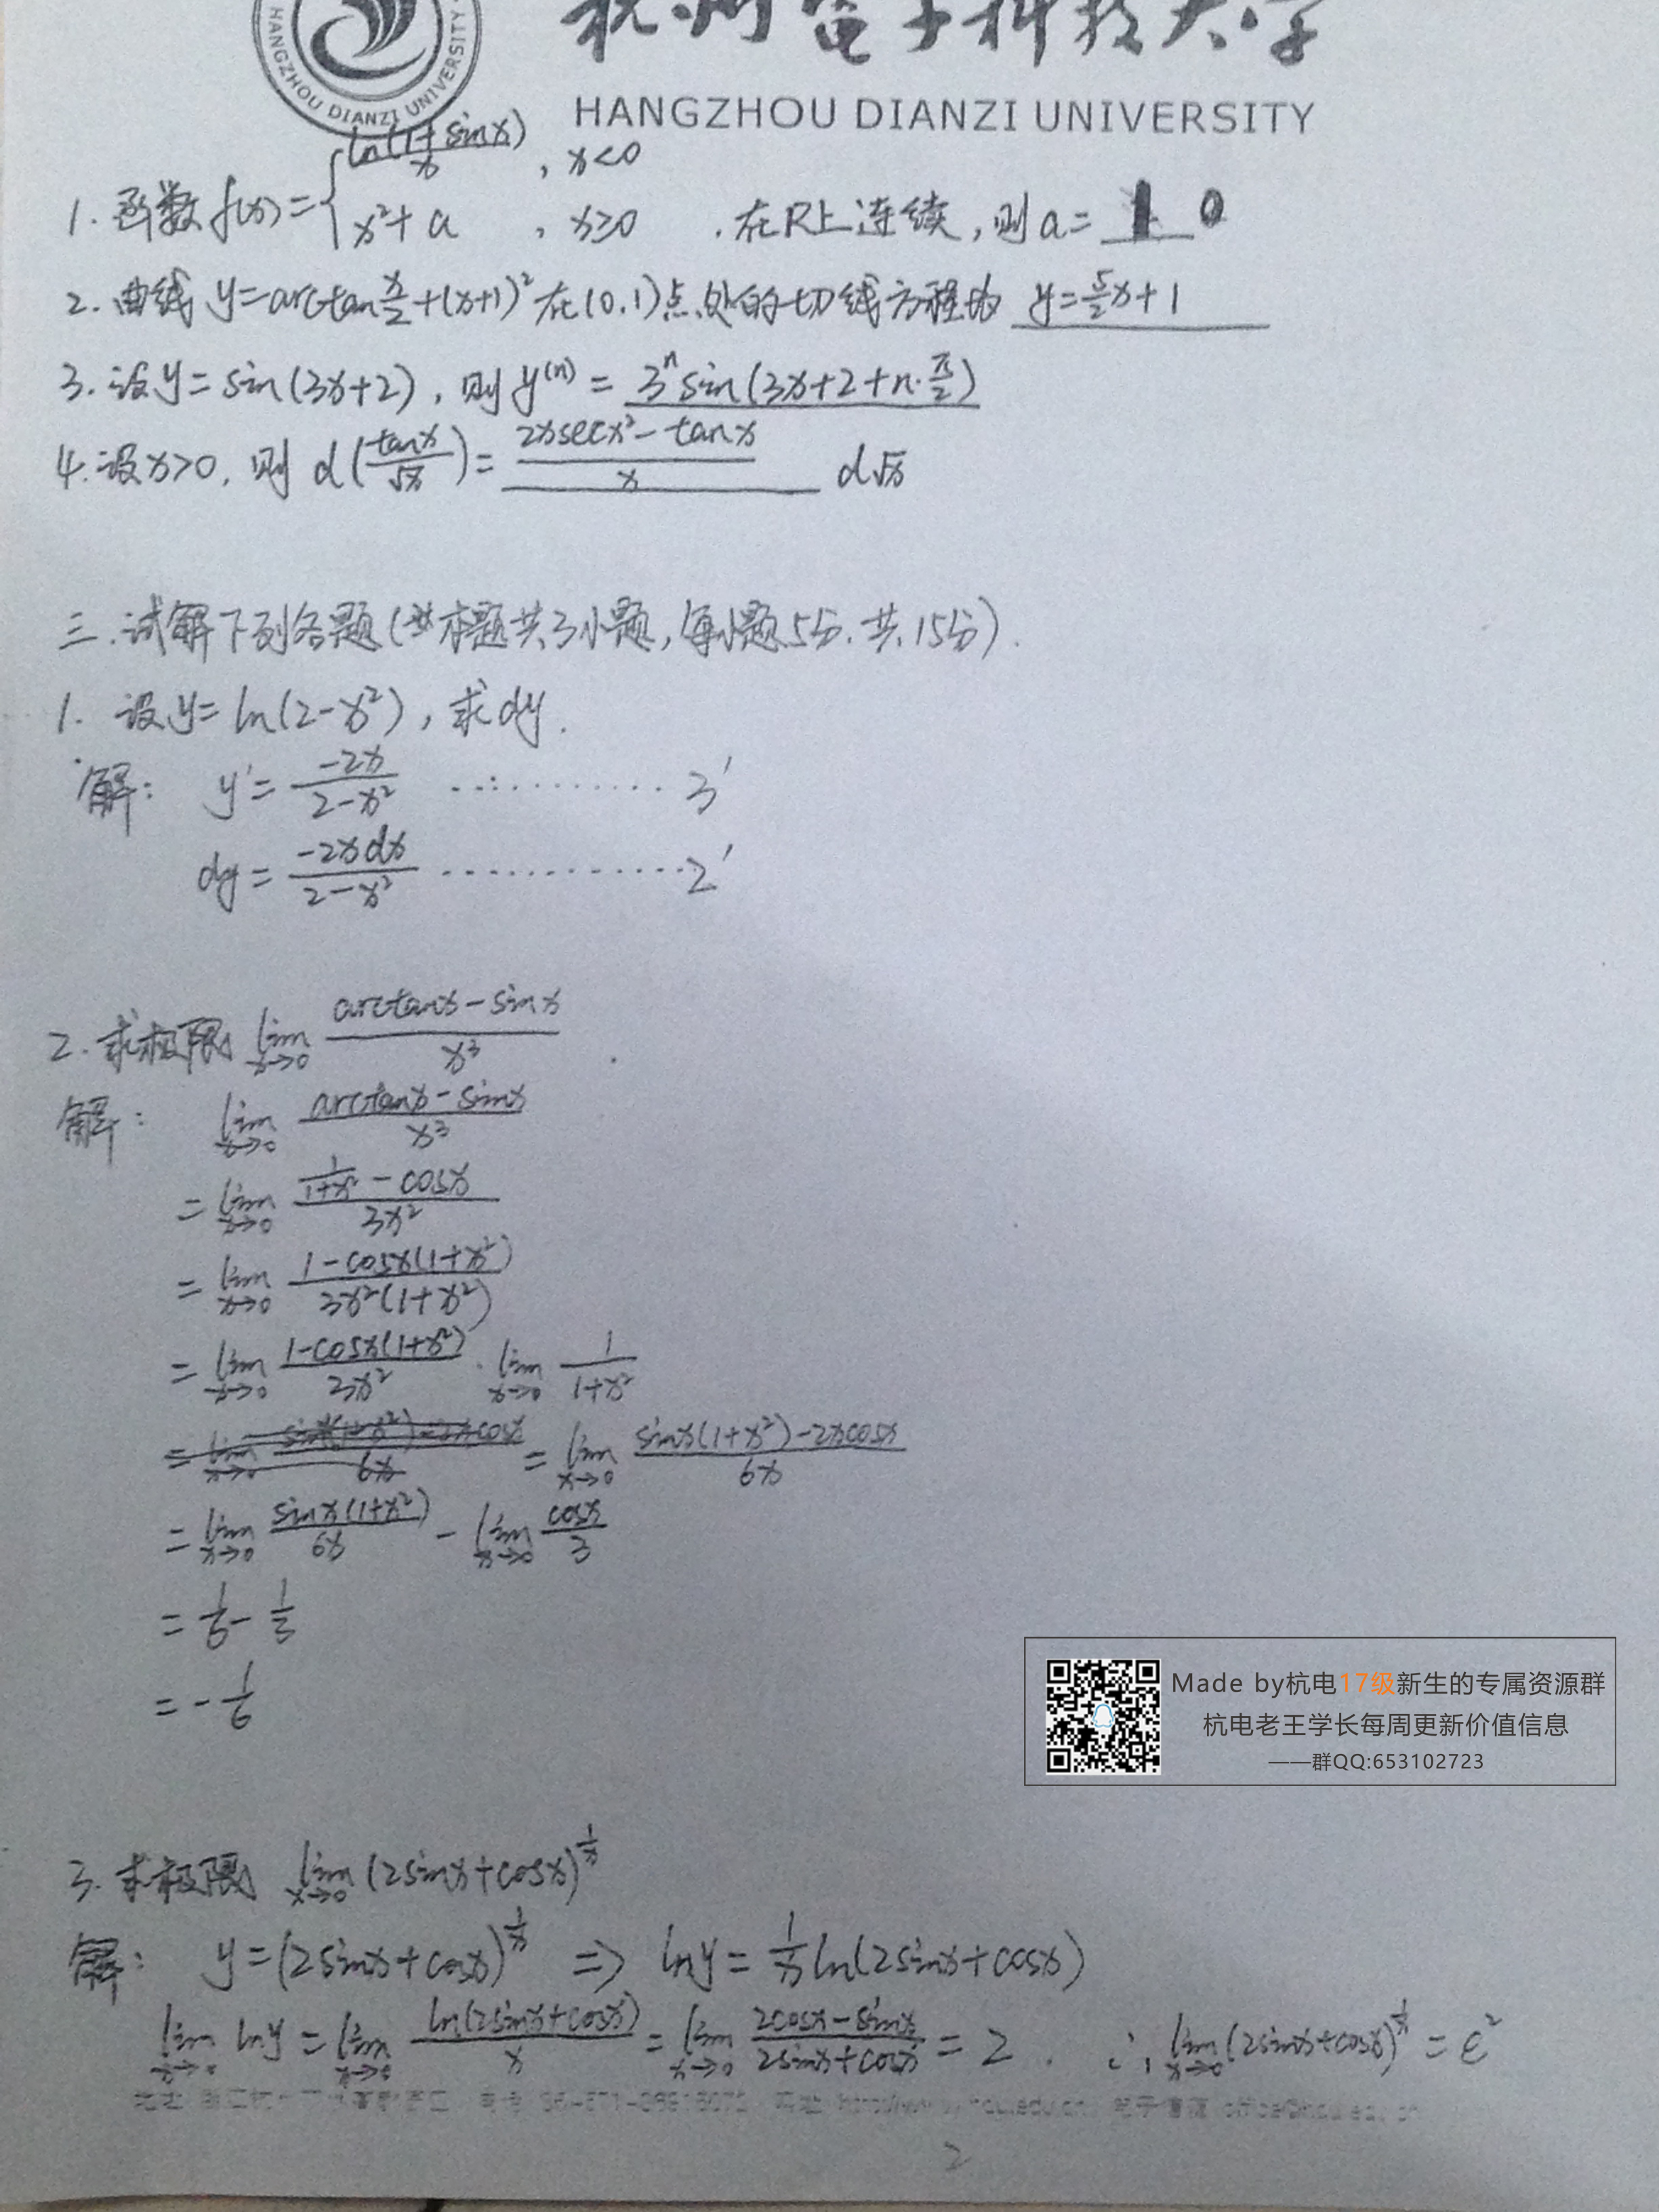 杭州电子科技大学
HANGZHOU DIANZI UNIVERSITY
HANGZHOU DIANZI UNIVERSITY
1. 函数f(x)={ ln(1+sinx)/x , x<0
x²+a , x≥0 . 在R上连续,则a= 1 0
2. 曲线 y=arctan x/2+(x+1)² 在(0,1)点处的切线方程为 y=5/2x+1
3. 设y=sin(3x+2), 则y⁽ⁿ⁾= 3ⁿsin(3x+2+n·π/2)
4. 设x>0, 则 d(tanx/√x)= (2xsecx² - tanx)/x d√x
三. 试解下列各题(本题共3小题,每小题5分.共15分).
1. 设y=ln(2-x²), 求dy.
解: y'= -2x/(2-x²) ............ 3'
dy= -2xdx/(2-x²) ............ 2'
2. 求极限 lim x→0 (arctanx-sinx)/x³ .
解: lim x→0 (arctanx-sinx)/x³
= lim x→0 (1/(1+x²) - cosx)/3x²
= lim x→0 (1-cosx(1+x²))/(3x²(1+x²))
= lim x→0 (1-cosx(1+x²))/3x² · lim x→0 1/(1+x²)
= lim x→0 (sinx(1+x²)-2xcosx)/6x = lim x→0 (sinx(1+x²)-2xcosx)/6x
= lim x→0 sinx(1+x²)/6x - lim x→0 cosx/3
= 1/6 - 1/3
= -1/6
Made by杭电17级新生的专属资源群
杭电老王学长每周更新价值信息
——群QQ:653102723
3. 求极限 lim x→0 (2sinx+cosx)^(1/x)
解: y=(2sinx+cosx)^(1/x) ⇒ lny=1/x ln(2sinx+cosx)
lim x→0 lny = lim x→0 ln(2sinx+cosx)/x = lim x→0 (2cosx-sinx)/(2sinx+cosx) = 2 . ∴ lim x→0 (2sinx+cosx)^(1/x) = e²
2